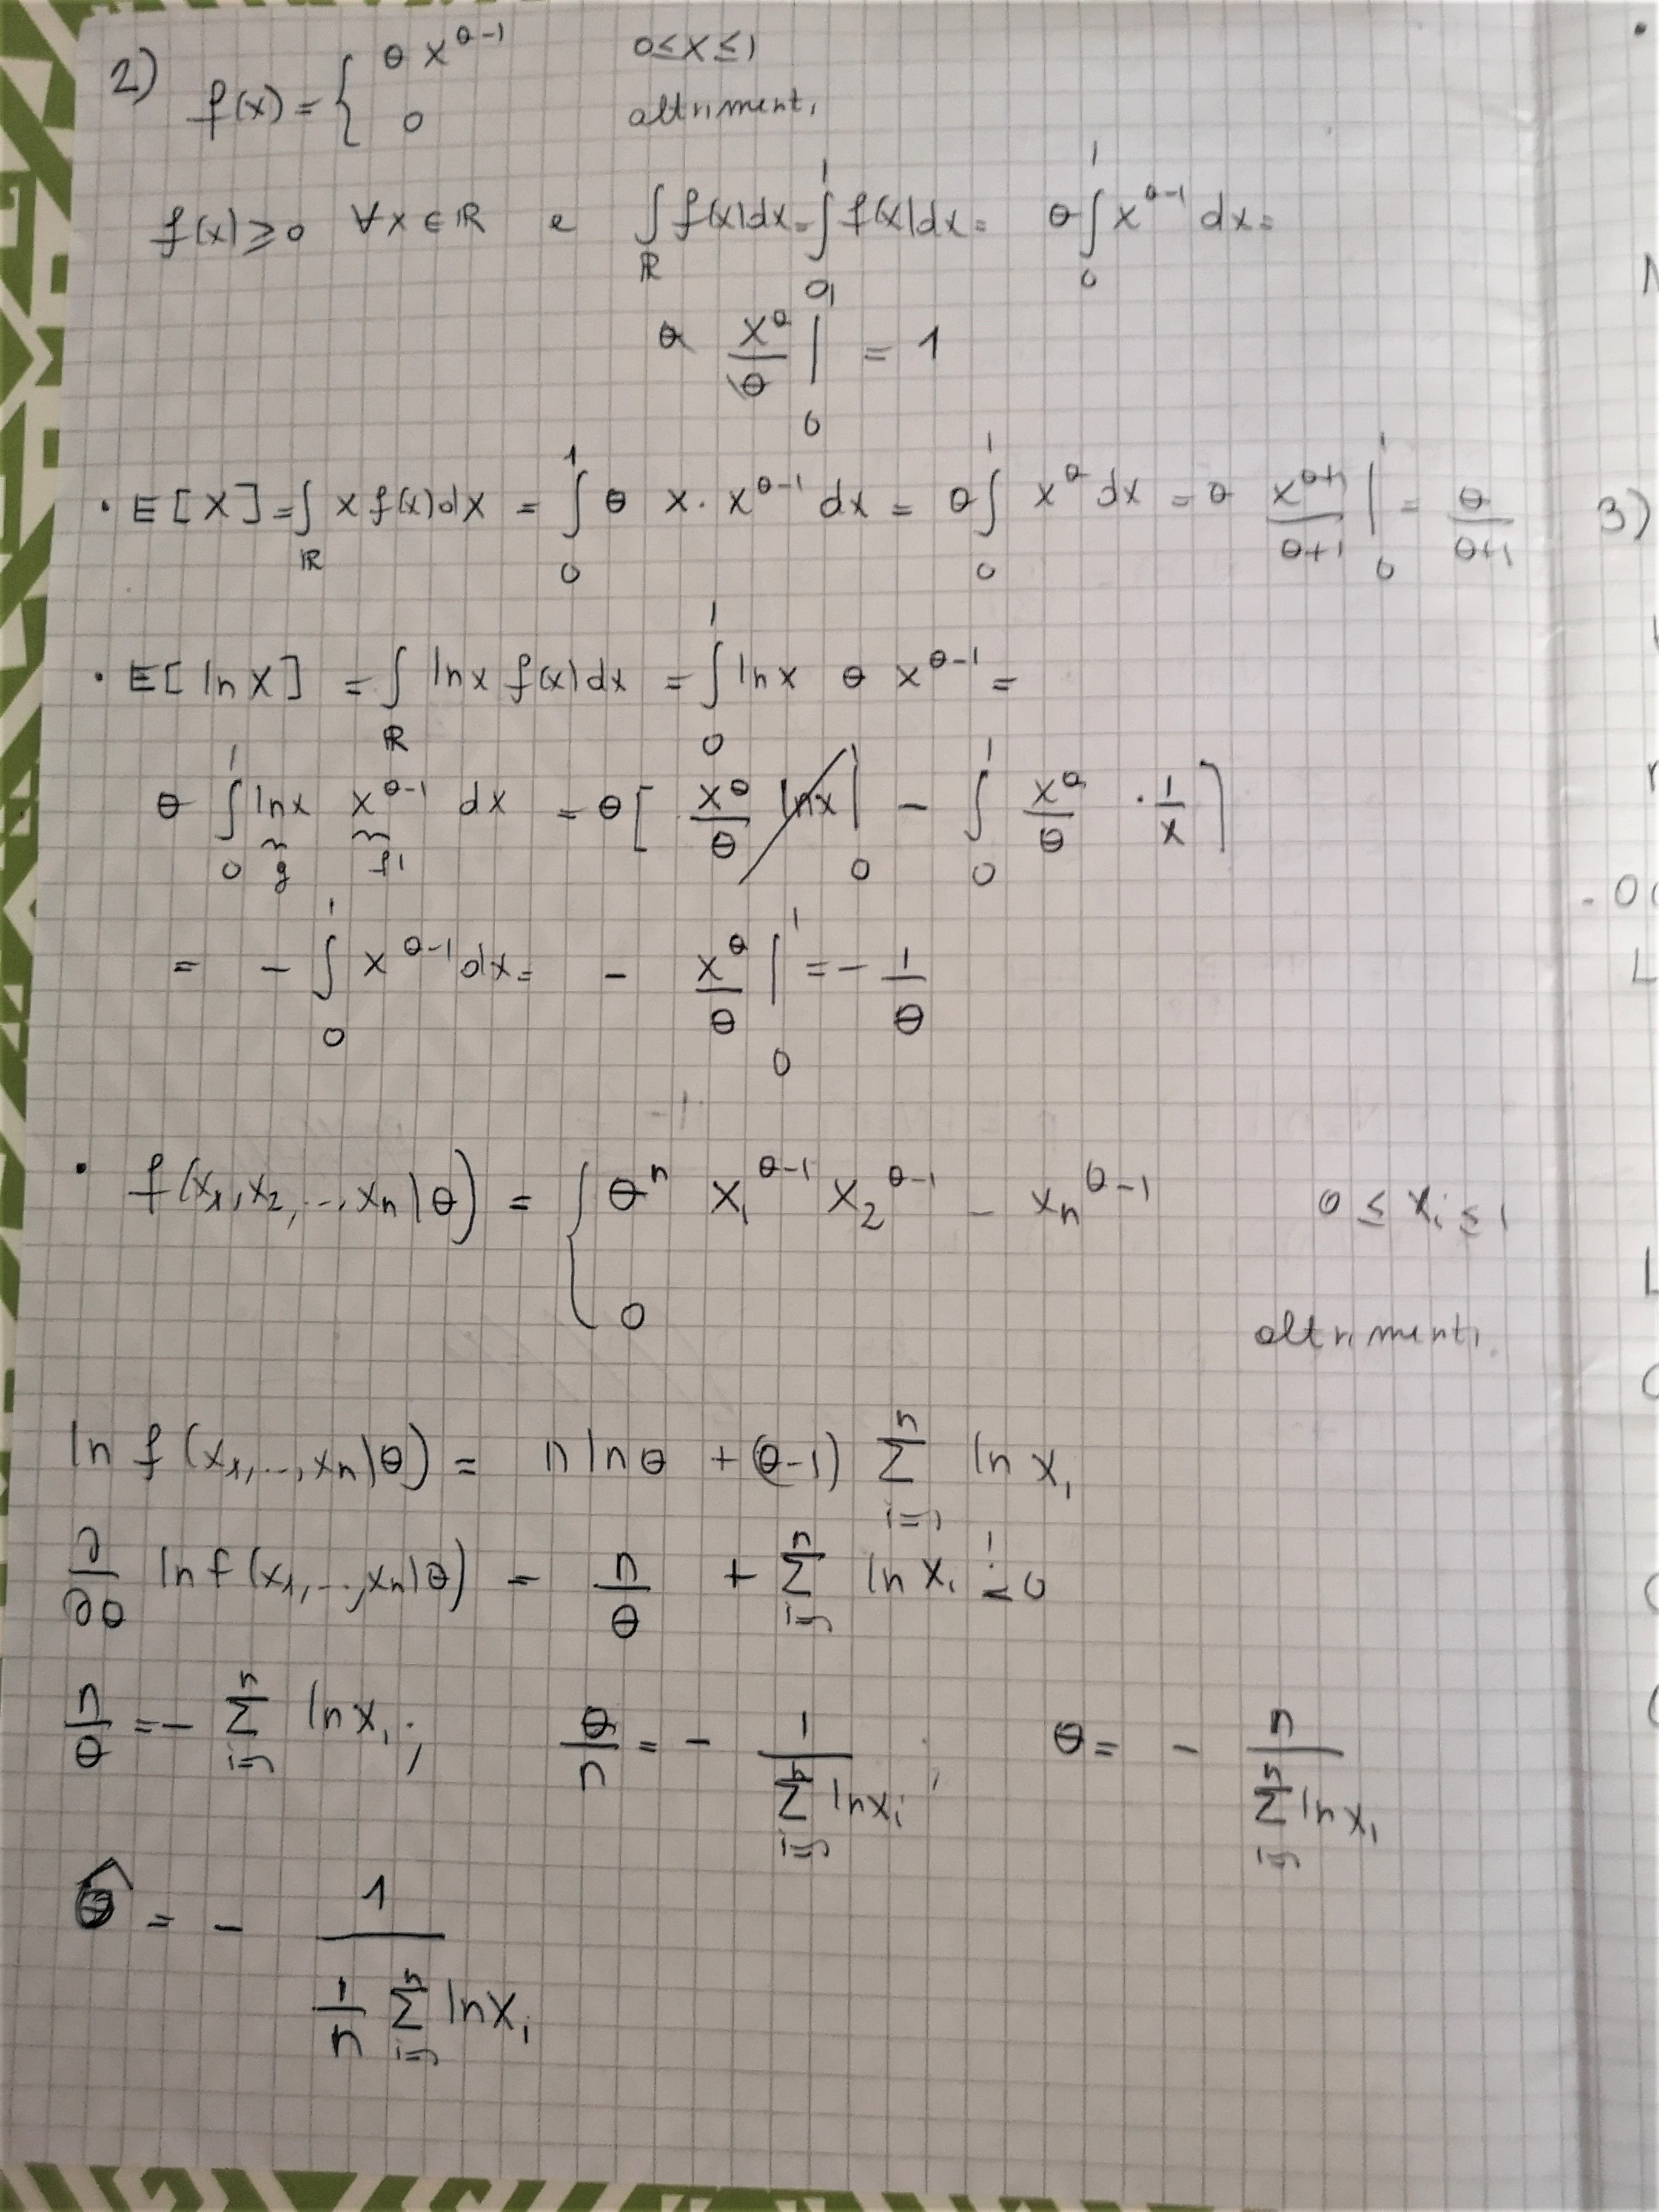 2) f(x) = { θ x^{θ-1}   0≤x≤1
0   altrimenti
f(x) ≥ 0 ∀x ∈ ℝ e ∫_ℝ f(x)dx = ∫_0^1 f(x)dx = θ∫_0^1 x^{θ-1} dx =
θ x^θ/θ |_0^1 = 1
• E[X] = ∫_ℝ x f(x)dx = ∫_0^1 θ x · x^{θ-1} dx = θ∫_0^1 x^θ dx = θ x^{θ+1}/(θ+1) |_0^1 = θ/(θ+1)
3)
• E[ln X] = ∫_ℝ ln x f(x)dx = ∫_0^1 ln x θ x^{θ-1} =
θ ∫_0^1 ln x x^{θ-1} dx = θ[ x^θ/θ ln x |_0^1 - ∫_0^1 x^θ/θ · 1/x ]
g f'
= - ∫_0^1 x^{θ-1} dx = - x^θ/θ |_0^1 = - 1/θ
• f(x_1, x_2, ..., x_n | θ) = { θ^n x_1^{θ-1} x_2^{θ-1} - x_n^{θ-1}   0 ≤ x_i ≤ 1
0   altrimenti
ln f(x_1, ..., x_n | θ) = n ln θ + (θ-1) Σ_{i=1}^n ln x_i
∂/∂θ ln f(x_1, ..., x_n | θ) = n/θ + Σ_{i=1}^n ln x_i != 0
n/θ = - Σ_{i=1}^n ln x_i ;   θ/n = - 1/(Σ_{i=1}^n ln x_i) ;   θ = - n/(Σ_{i=1}^n ln x_i)
θ̂ = - 1/(1/n Σ_{i=1}^n ln x_i)